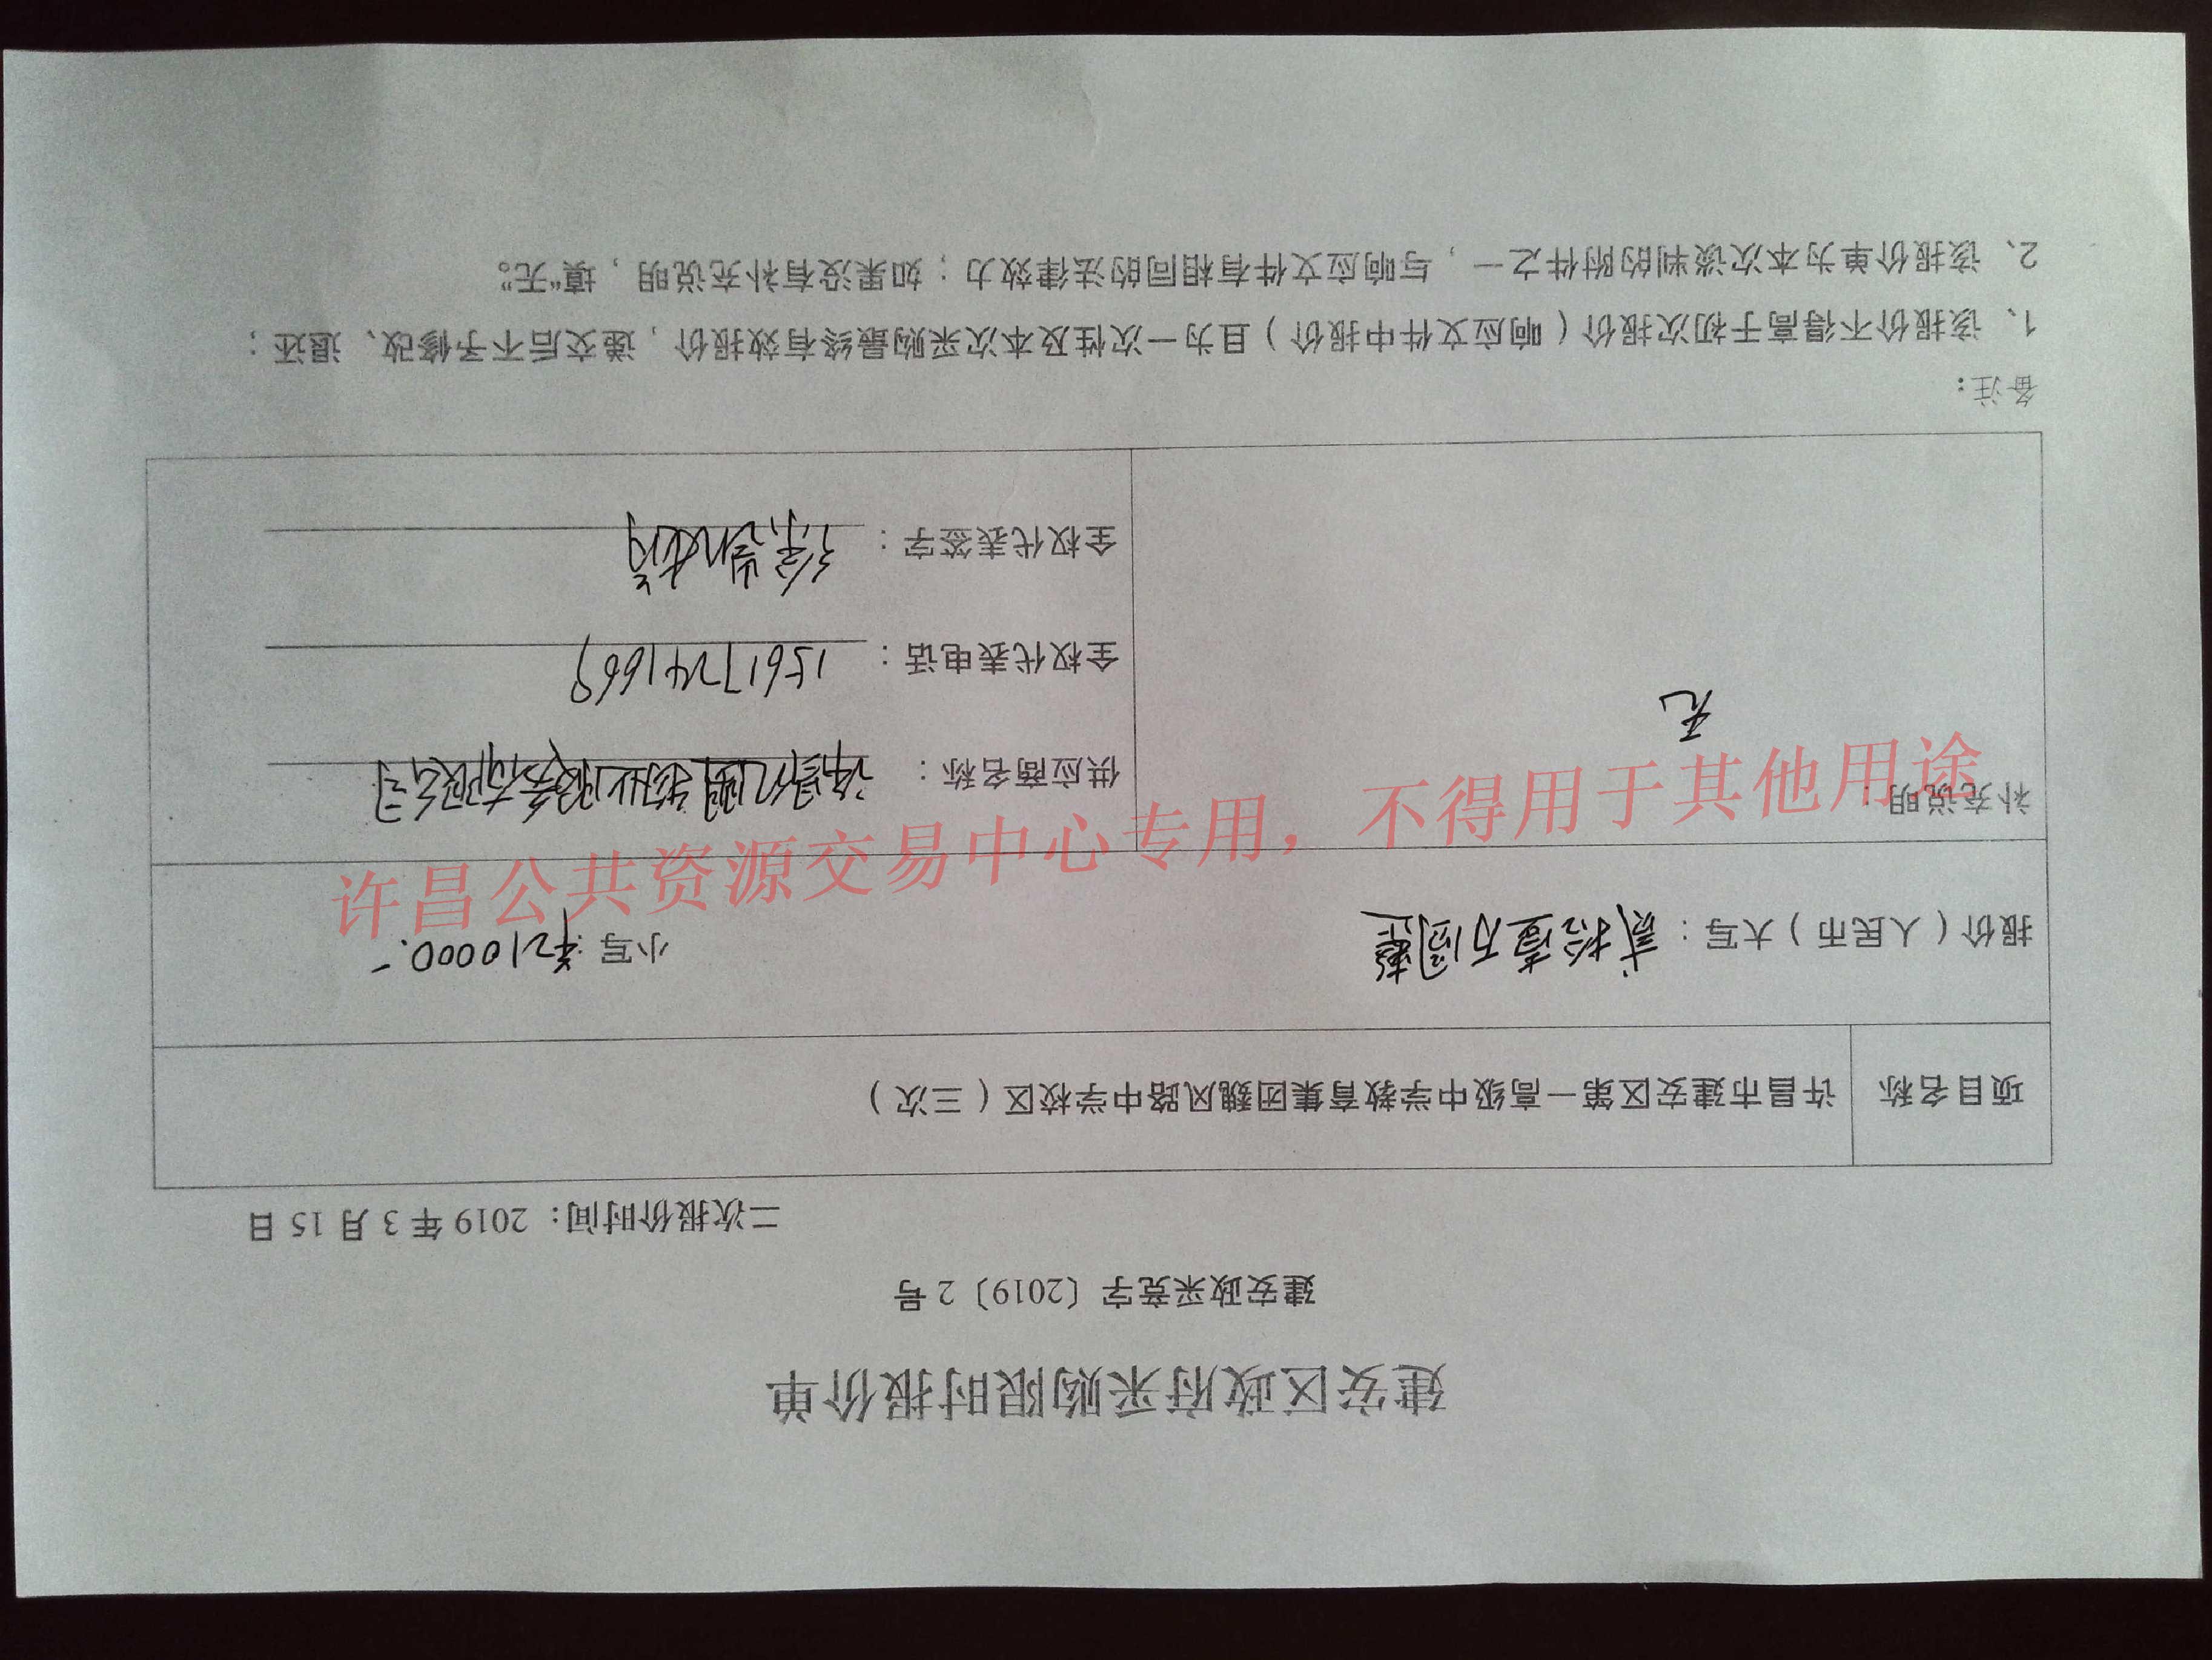 建安区政府采购限时报价单
建安政采竞字〔2019〕2号
二次报价时间：2019年3月15日
项目名称 许昌市建安区第一高级中学教育集团魏风路中学校区（三次）
报价（人民币）大写：贰拾壹万圆整 小写：¥210000.-
补充说明：
无
供应商名称： 许昌亿盟物业服务有限公司
全权代表电话： 15617241669
全权代表签字：
备注：
1、该报价不得高于初次报价（响应文件中报价）且为一次性及本次采购最终有效报价，递交后不予修改、退还；
2、该报价单为本次谈判的附件之一，与响应文件有相同的法律效力；如果没有补充说明，填“无”。
许昌公共资源交易中心专用，不得用于其他用途